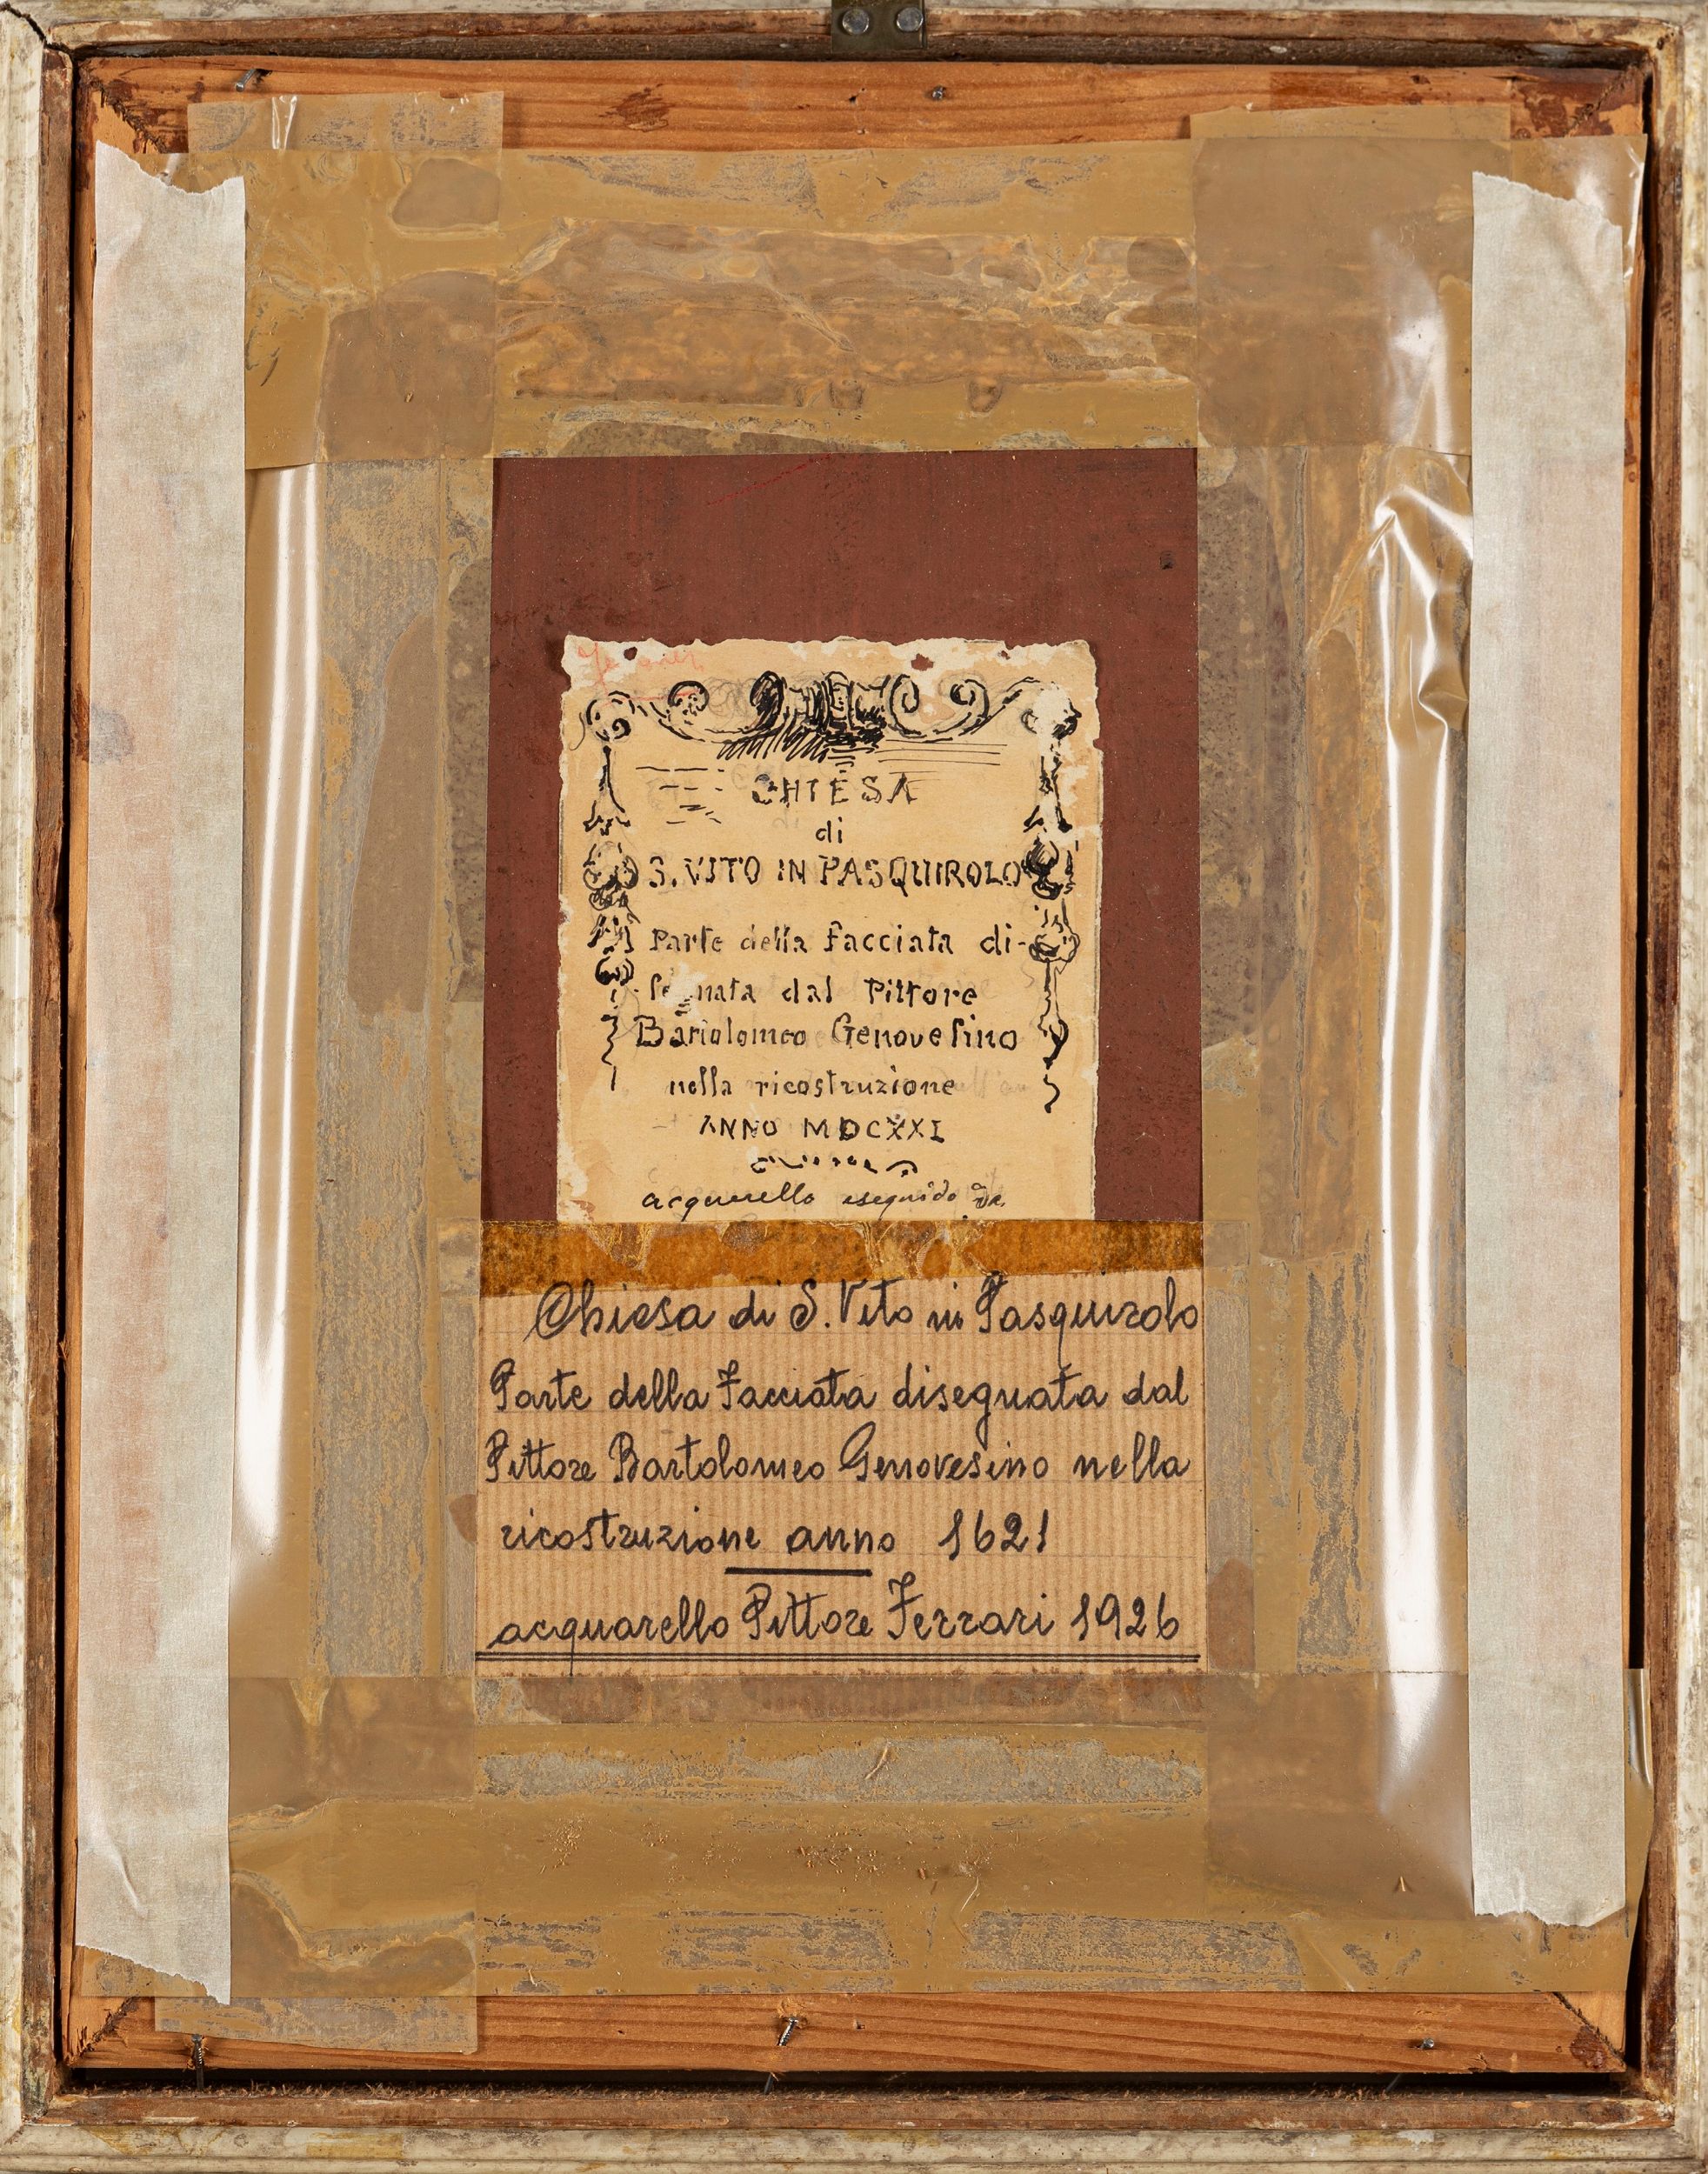 CHIESA
di
S. VITO IN PASQUIROLO
Parte della facciata di-
segnata dal Pittore
Bartolomeo Genovesino
nella ricostruzione
ANNO MDCXXI
acquarello eseguido da
Chiesa di S. Vito in Pasquirolo
Parte della Facciata disegnata dal
Pittore Bartolomeo Genovesino nella
ricostruzione anno 1621
acquarello Pittore Ferrari 1926